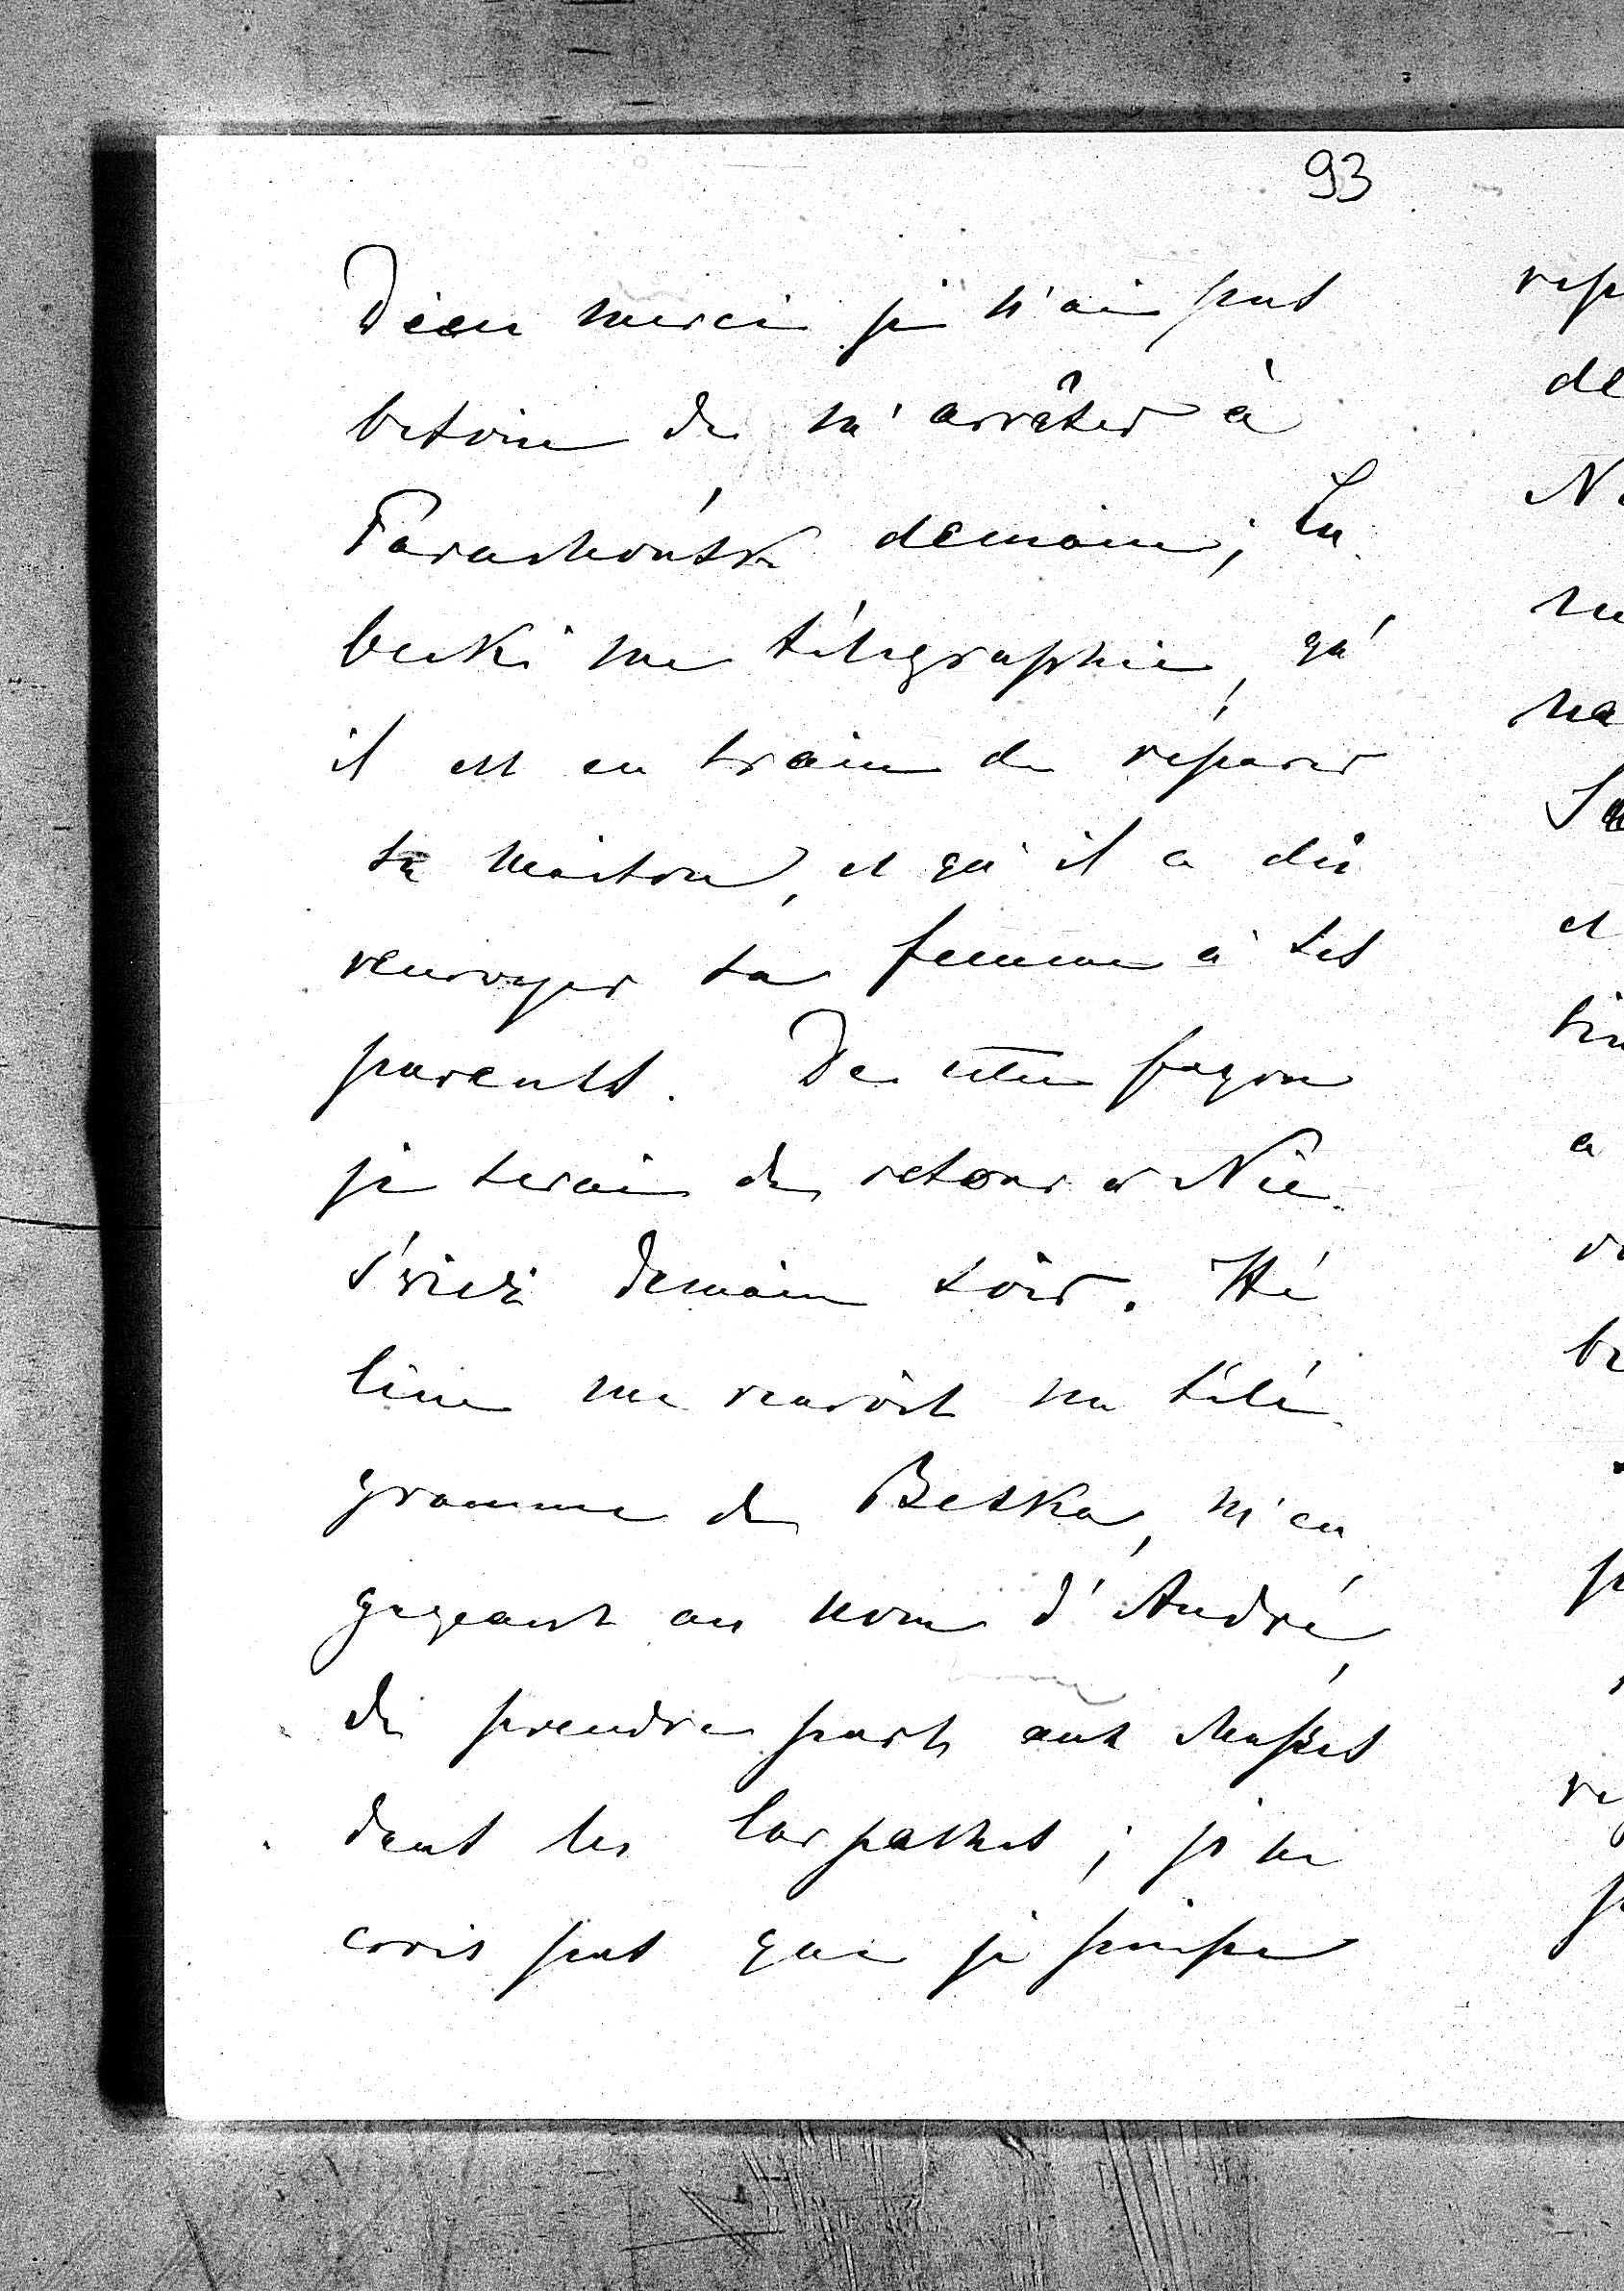 93
Dieu merci je n'ai pas
besoin de m'arrêter à
Parachońsk demain; Lu
becki me télégraphie, qu'
il est en train de reparer
sa maison, et qu'il a dû
renvoyer sa femme à ses
parents. De cette façon
je serai de retour à Nie
śwież demain soir. Hé
lène me renvoit un télé
gramme de Betka, m'en
gageant au nom d'André,
de prendre part aux chasses
dans les Carpathes; je ne
crois pas que je puisse